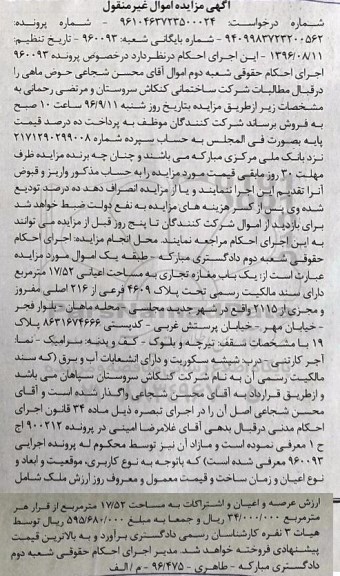 آگهی مزایده اموال غیرمنقول
شماره درخواست: ۹۶۱۰۴۶۳۷۲۳۵۰۰۰۲۴ شماره پرونده:
۹۴۰۹۹۸۳۷۲۳۲۰۰۵۶۲ - شماره بایگانی شعبه: ۹۶۰۰۹۳ - تاریخ تنظیم:
۱۳۹۶/۰۸/۱۱ - این اجرای احکام درنظردارد درخصوص پرونده ۹۶۰۰۹۳
اجرای احکام حقوقی شعبه دوم اموال آقای محسن شجاعی حوض ماهی را
درقبال مطالبات شرکت ساختمانی کنکاش سروستان و مرتضی رحمانی به
مشخصات زیر ازطریق مزایده بتاریخ روز شنبه ۹۶/۹/۱۱ ساعت ۱۰ صبح
به فروش برساند شرکت کنندگان موظف به پرداخت ده درصد قیمت
پایه بصورت فی المجلس به حساب سپرده شماره ۲۱۷۱۲۹۰۲۹۹۰۰۸
نزد بانک ملی مرکزی مبارکه می باشند و چنان چه برنده مزایده ظرف
مهلت ۳۰ روز مابقی قیمت مورد مزایده را به حساب مذکور واریز و قبوض
آنرا تقدیم این اجرا ننمایند و یا از مزایده انصراف دهد ده درصد تودیع
شده وی پس از کسر هزینه های مزایده به نفع دولت ضبط خواهد شد
برای بازدید از اموال شرکت کنندگان تا پنج روز قبل از مزایده می توانند
به این اجرای احکام مراجعه نمایند. محل انجام مزایده: اجرای احکام
حقوقی شعبه دوم دادگستری مبارکه - طبقه یک اموال مورد مزایده
عبارت است از: یک باب مغازه تجاری به مساحت اعیانی ۱۷/۵۲ مترمربع
دارای سند مالکیت رسمی تحت پلاک ۴۶۰۹ فرعی از ۲۱۶ اصلی مفروز
و مجزی از ۲۱۱۵ واقع در شهر جدید مجلسی - محله ماهان - بلوار فجر
- خیابان مهر - خیابان پرستش غربی - کدپستی ۸۶۳۱۶۷۴۶۶۶ پلاک
۱۹ با مشخصات سقف: تیرچه و بلوک - کف و بدنه: سرامیک - نما:
آجر کارتنی - درب: شیشه سکوریت و دارای انشعابات آب و برق (که سند
مالکیت رسمی آن به نام شرکت کنکاش سروستان سپاهان می باشد
و ازطریق قرارداد به آقای محسن شجاعی واگذار شده است و آقای
محسن شجاعی اصل آن را در اجرای تبصره ذیل ماده ۳۴ قانون اجرای
احکام مدنی درقبال بدهی آقای غلامرضا امینی در پرونده ۹۰۰۲۱۲ اج
ح ۱ معرفی نموده است و مازاد آن نیز توسط محکوم له پرونده اجرایی
۹۶۰۰۹۳ معرفی شده است) که باتوجه به نوع کاربری، موقعیت و ابعاد و
نوع اعیان و زمان ساخت و قیمت معمول و معروف روز ارزش ملک شامل
ارزش عرصه و اعیان و اشتراکات به مساحت ۱۷/۵۲ مترمربع از قرار هر
مترمربع ۳۴/۰۰۰/۰۰۰ ریال و جمعا به مبلغ ۵۹۵/۶۸۰/۰۰۰ ریال توسط
هیات ۳ نفره کارشناسان رسمی دادگستری برآورد و به بالاترین قیمت
پیشنهادی فروخته خواهد شد. مدیر اجرای احکام حقوقی شعبه دوم
دادگستری مبارکه - طاهری - ۹۶/۴۷۵ - م / الف